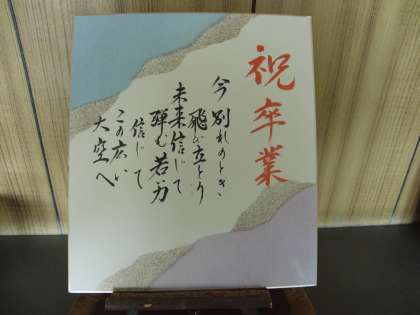 祝卒業
今 別れのとき
飛び立とう
未来信じて
弾む若い力
信じて
この広い
大空へ